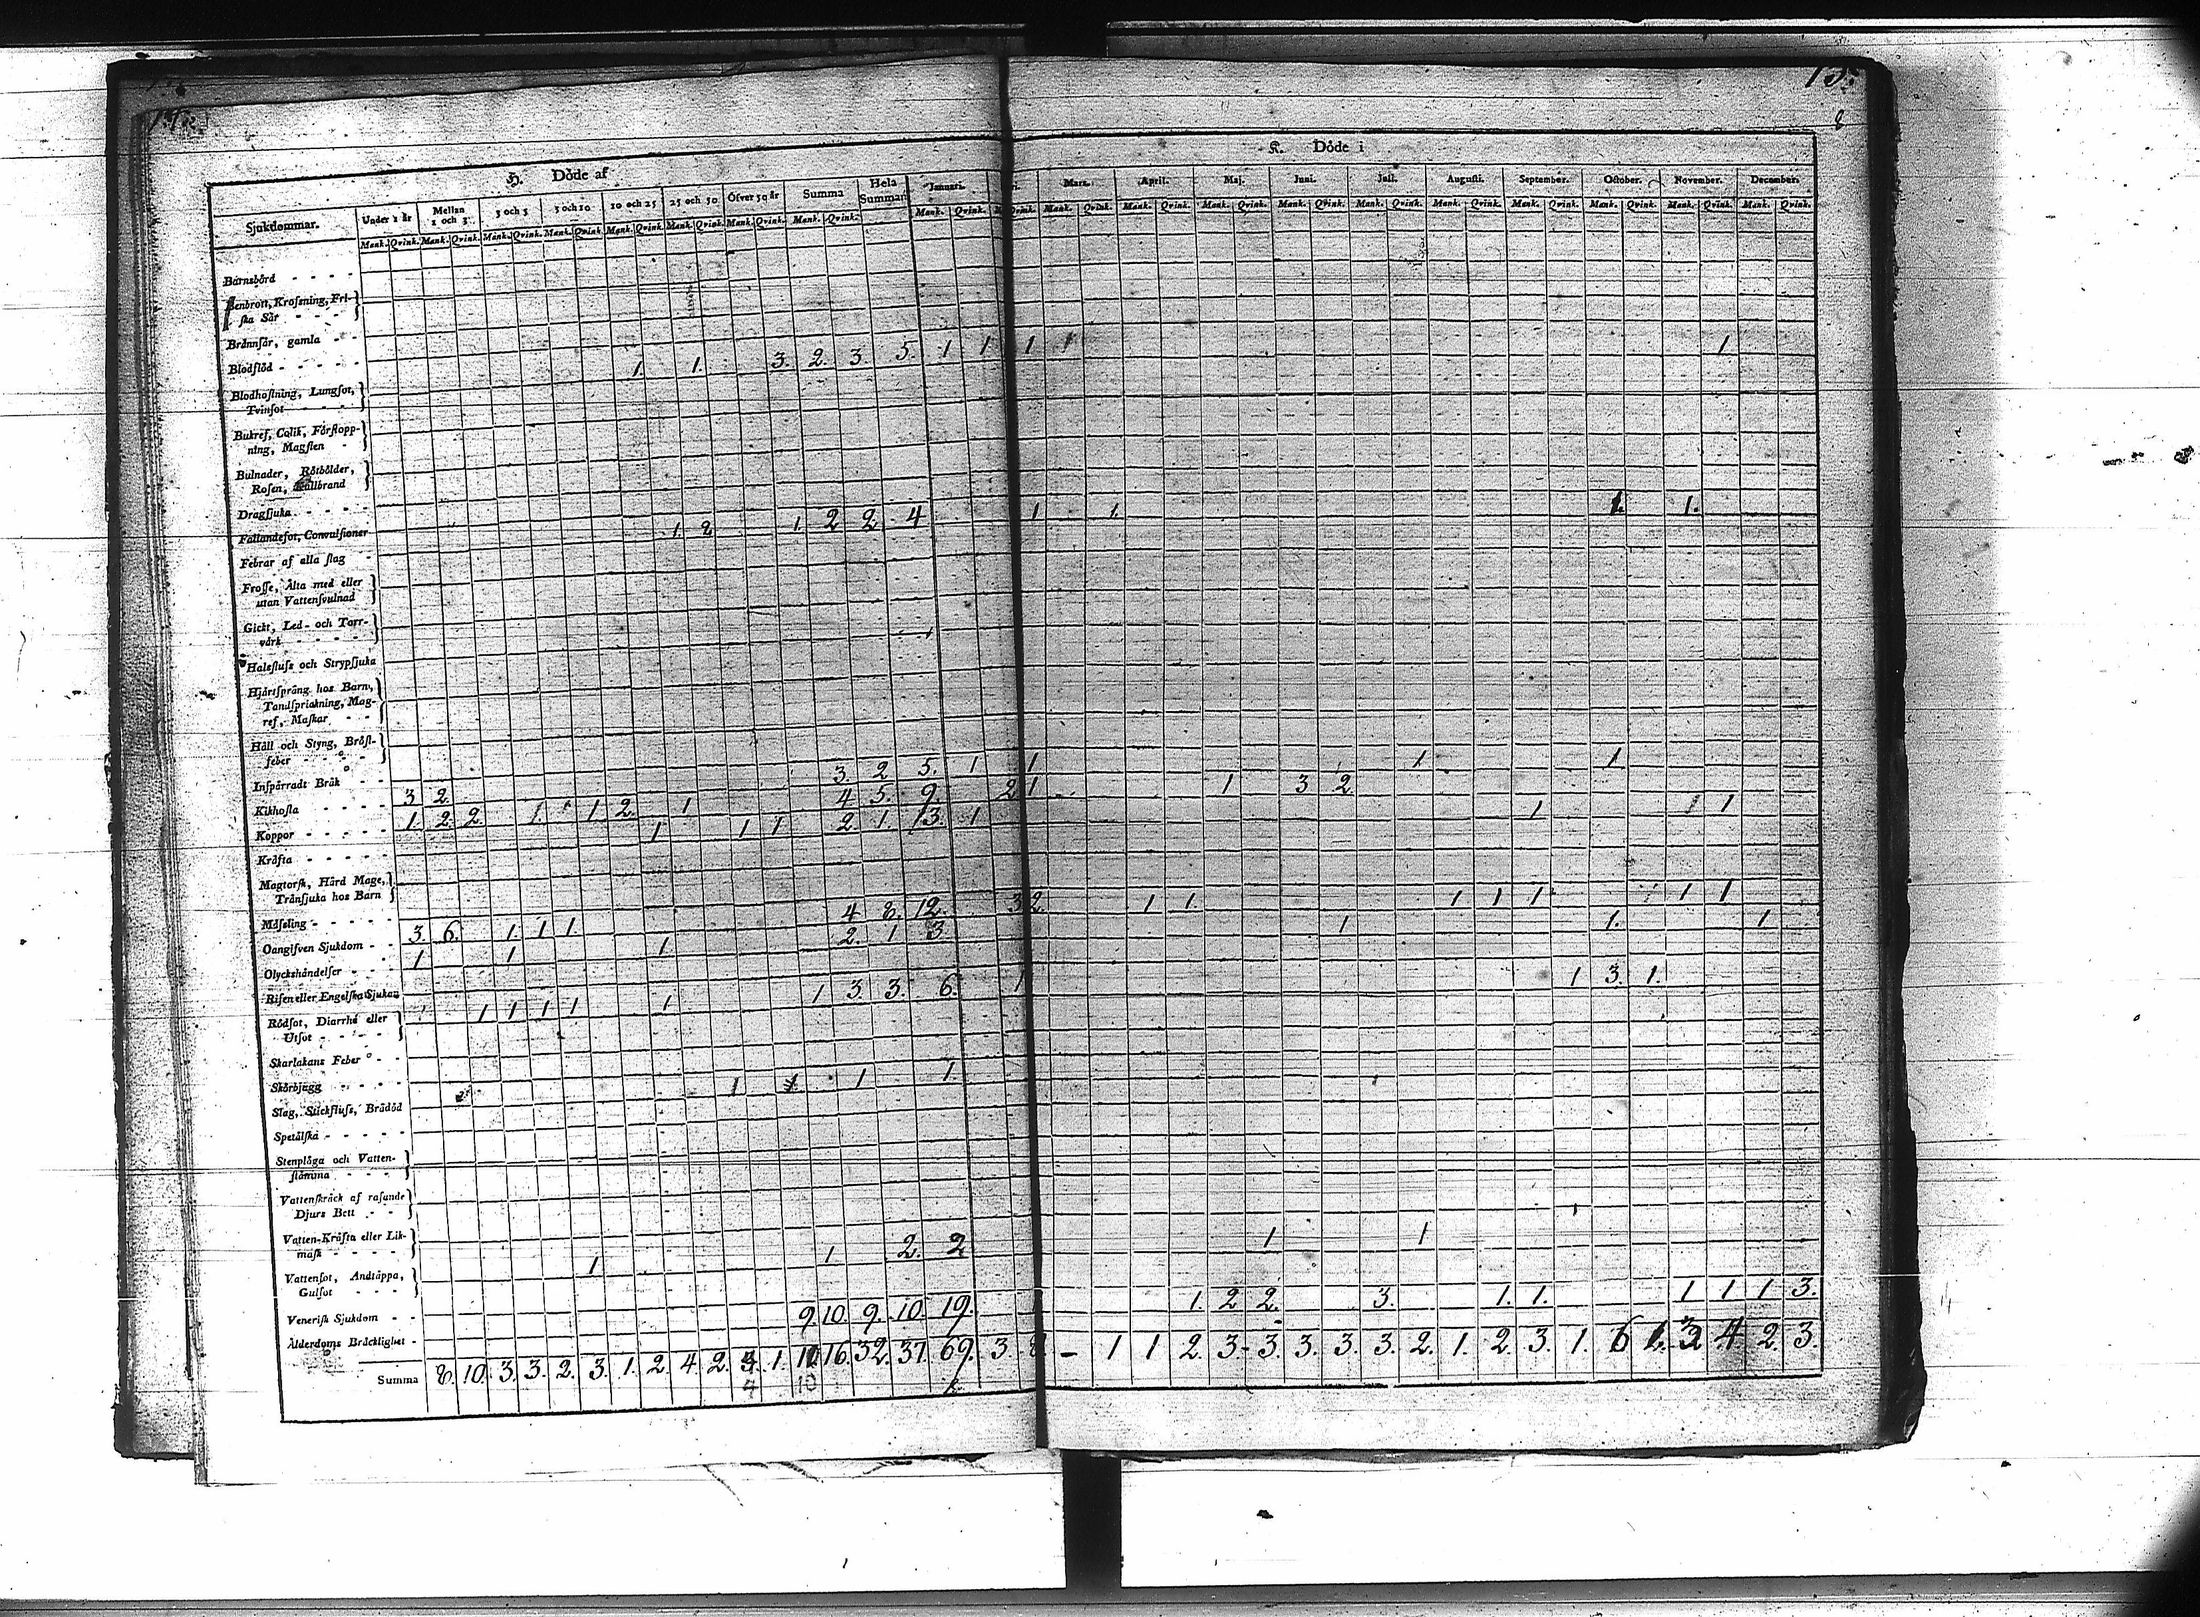 15.
8
H. Döde af
K. Döde i
Sjukdommar. Under 1 år Mellan 1 och 3 3 och 5 5 och 10 10 och 25 25 och 50 Öfver 50 år Summa Hela Summan Januari. Mars. April. Maj. Juni. Juli. Augusti. September. October. November. December.
Mank. Qvink. Mank. Qvink. Mank. Qvink. Mank. Qvink. Mank. Qvink. Mank. Qvink. Mank. Qvink. Mank. Qvink. Mank. Qvink. Qvink. Mank. Qvink. Mank. Qvink. Mank. Qvink. Mank. Qvink. Mank. Qvink. Mank. Qvink. Mank. Qvink. Mank. Qvink. Mank. Qvink. Mank. Qvink.
Barnsbörd - - - -
Benbrott, Krosning, Fri-
ska Sår - - -
Brännsår, gamla - -
Blodflöd - - - - - 1. 1. 3. 2. 3. 5. 1 1 1 1 1
Blodhostning, Lungsot,
Tvinsot - - - -
Bukref, Colik, Förstopp-
ning, Magsten -
Bulnader, Rötbölder,
Rosen, Kallbrand
Dragsjuka - - - - -
Fallandesot, Convulsioner 1. 2 1. 2 2 4 1 1. 1. 1.
Febrar af alla slag -
Frosse, Älta med eller
utan Vattensvulnad
Gickt, Led- och Torr-
värk - - - -
Halsfluss och Strypsjuka
Hjärtsprång hos Barn,
Tandsprickning, Mag-
ref, Maskar - -
Håll och Styng, Bröst-
feber - - - -
Inspärradt Bråk - - 3. 2 5. 1 1 1 1
Kikhosta - - - - 3 2. 4 5. 9. 2 1 1 3 2
Koppor - - - - - 1. 2. 2. 1. 1 2. 1 1 1 1 2. 1. 13. 1 1 1 1
Kräfta - - - - -
Magtorsk, Hård Mage,
Transjuka hos Barn
Mässling - - - - 3. 6. 1. 1 1. 4 8. 12. 3 2. 1 1. 1 1 1 1 1
Oangifven Sjukdom - - 1 1 1 2. 1 3. 1 1. 1
Olyckshändelser - - -
Risen eller Engelska Sjukan 1 1 1 1 1 1 3. 3. 6. 1 1 3. 1.
Rödsot, Diarrhé eller
Utsot - - - -
Skarlakans Feber - -
Skörbjugg - - - - 1 1 1.
Slag, Stickfluss, Brådöd
Spetälska - - - - -
Stenplåga och Vatten-
stämma - - -
Vattenskräck af rasande
Djurs Bett - -
Vatten-Kräfta eller Lik-
mask - - - - 1 1. 2. 2 1 1
Vattensot, Andtäppa,
Gulsot - - -
Venerisk Sjukdom - - 9. 10. 9. 10. 19. 1. 2 2. 3. 1. 1. 1 1 1 3.
Ålderdoms Bräcklighet -
Summa 8. 10. 3. 3. 2. 3. 1. 2 4 2. 1. 16. 32. 37. 69. 3. - 1 1 2. 3. 3. 3. 3. 3. 2. 1. 2. 3. 1. 6 4. 2. 3.
10